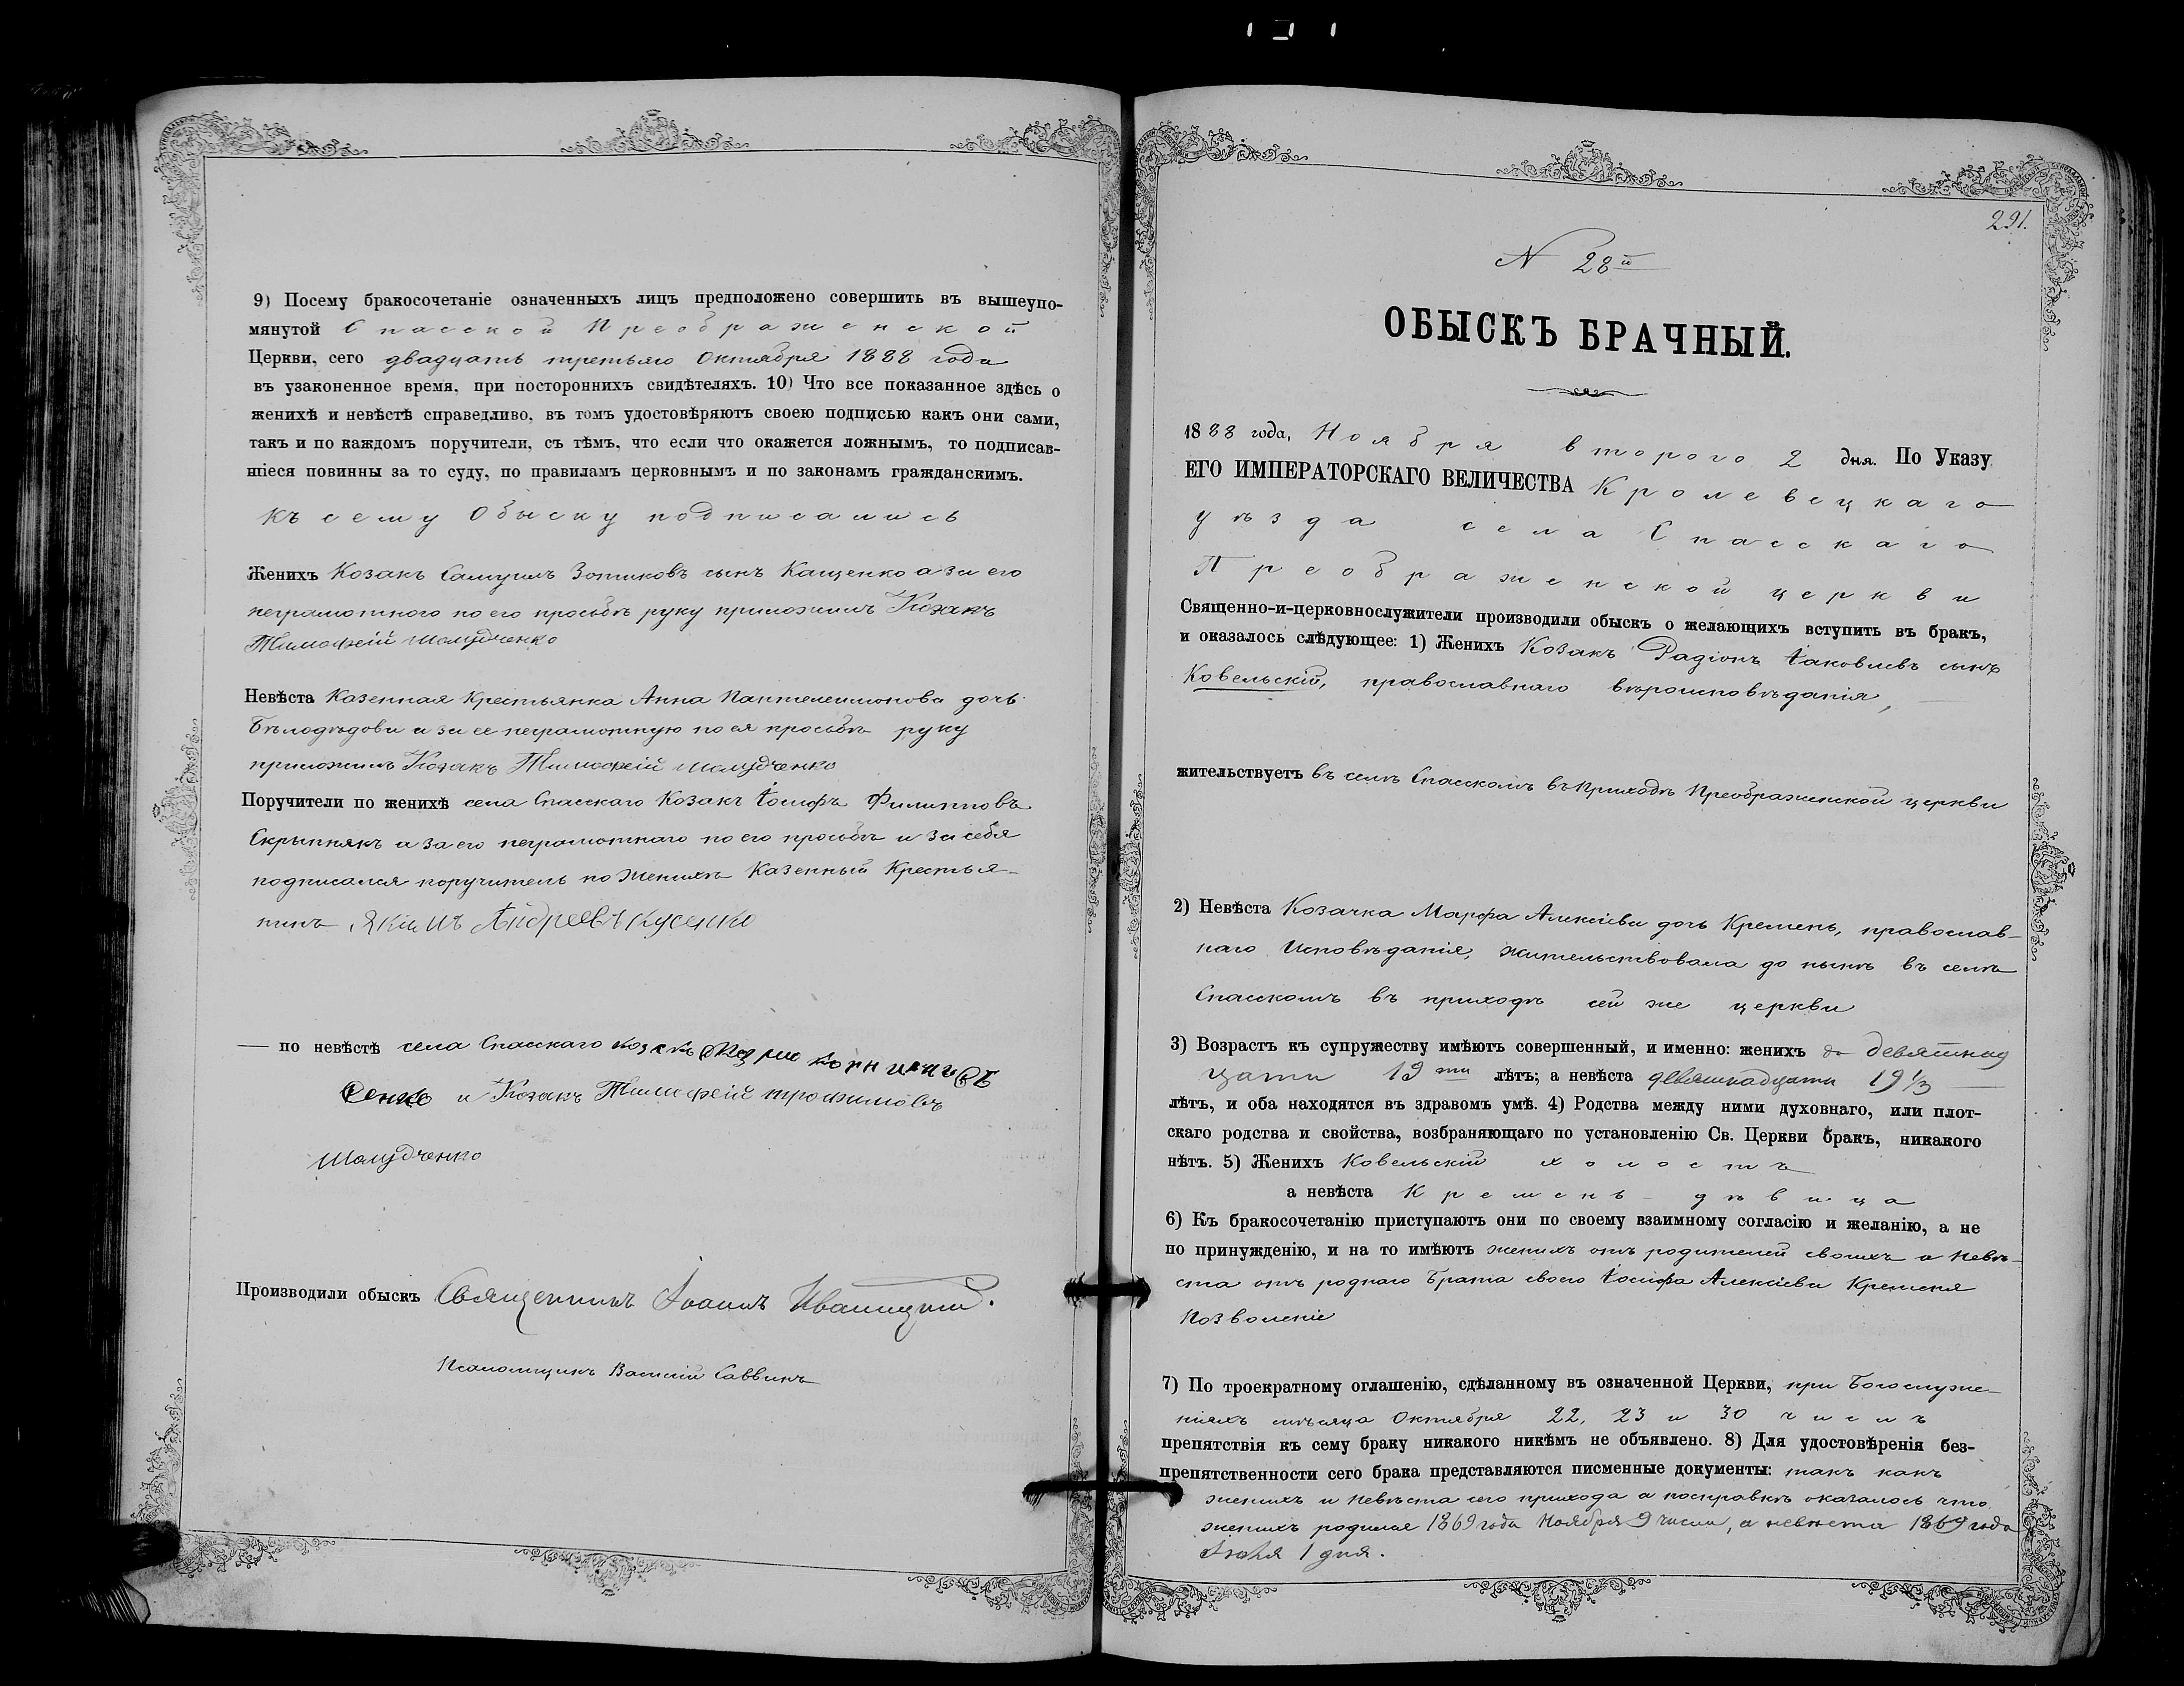 9) Посему бракосочетаніе означенныхъ лицъ предположено совершить въ вышеупо-
мянутой Спасской Преображенской
Церкви, сего двадцать третьяго Октября 1888 года
въ узаконенное время, при постороннихъ свидѣтеляхъ. 10) Что все показанное здѣсь о
женихѣ и невѣстѣ справедливо, въ томъ удостовѣряютъ своею подписью какъ они сами,
такъ и по каждомъ поручители, съ тѣмъ, что если что окажется ложнымъ, то подписав-
шіеся повинны за то суду, по правиламъ церковнымъ и по законамъ гражданскимъ.
Къ сему Обыску подписались
Женихъ Козакъ Самуилъ Зотиковъ сынъ Кащенко а за его
неграмотного по его просьбѣ руку приложилъ Козакъ
Тимофей Шолудченко
Невѣста Казенная Крестьянка Анна Пантелеимонова дочь
Бѣлодѣдова а за ее неграмотную по ея просьбѣ руку
приложилъ Козакъ Тимофей Шолудченко
Поручители по женихѣ села Спасскаго Козакъ Іосифъ Филипповъ
Скрыпнякъ а за его неграмотнаго по его просьбѣ и за себя
подписался поручитель по женихѣ Казенный Крестья-
нинъ Якимъ Андреевъ Кусенко
— по невѣстѣ села Спасскаго козакъ
и Козакъ Тимофей Трофимовъ
Шолудченко
Производили обыскъ Священникъ Іоаннъ Иваницкій.
Псаломщикъ Василій Саввинъ
291.
N 28й
ОБЫСКЪ БРАЧНЫЙ.
1888 года, Ноября второго 2 дня. По Указу
ЕГО ИМПЕРАТОРСКАГО ВЕЛИЧЕСТВА Кролевецкаго
уѣзда села Спасскаго
Преображенской церкви
Священно-и-церковнослужители производили обыскъ о желающихъ вступить въ бракъ,
и оказалось слѣдующее: 1) Женихъ Козакъ Радіонъ Іаковлевъ сынъ
Ковельскій, православнаго вѣроисповѣданія,
жительствуетъ въ селѣ Спасскомъ въ Приходѣ Преображенской церкви
2) Невѣста Козачка Марфа Алексіева дочь Кремень, православ-
наго Исповѣданія, жительствовала до нынѣ въ селѣ
Спасскомъ въ приходѣ сей же церкви
3) Возрастъ къ супружеству имѣютъ совершенный, и именно: женихъ до девятнад
цати 19ти лѣтъ; а невѣста девятнадцати 19 1/3
лѣтъ, и оба находятся въ здравомъ умѣ. 4) Родства между ними духовнаго, или плот-
скаго родства и свойства, возбраняющаго по установленію Св. Церкви бракъ, никакого
нѣтъ. 5) Женихъ Ковельскій холостъ
а невѣста Кремень - дѣвица
6) Къ бракосочетанію приступаютъ они по своему взаимному согласію и желанію, а не
по принужденію, и на то имѣютъ женихъ отъ родителей своихъ а невѣ-
ста отъ роднаго Брата своего Іосифа Алексіева Кременя
позволеніе
7) По троекратному оглашенію, сдѣланному въ означенной Церкви, при Богослуже-
ніяхъ мѣсяца Октября 22, 23 и 30 числъ
препятствія къ сему браку никакого никѣмъ не объявлено. 8) Для удостовѣренія без-
препятственности сего брака представляются писменные документы: такъ какъ
женихъ и невѣста сего прихода а посправкѣ оказалось что
женихъ родился 1869 года Ноября 9 числа, а невѣста 1869 года
Іюля 1 дня.